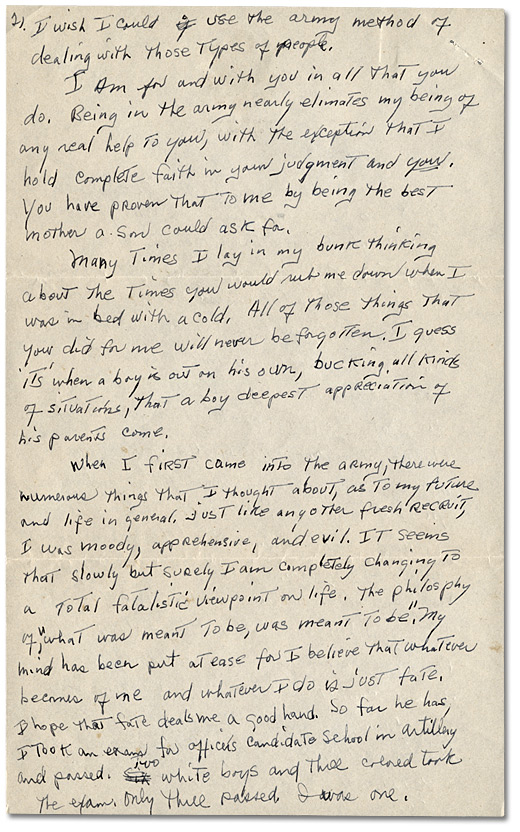 2). I wish I could use the army method of
dealing with those types of people.
I Am for and with you in all that you
do. Being in the army nearly elimates my being of
any real help to you, with the exception that I
hold complete faith in your judgment and you.
You have proven that to me by being the best
mother a son could ask for.
Many times I lay in my bunk thinking
about the times you would rub me down when I
was in bed with a cold. All of those things that
you did for me will never be forgotten. I guess
its when a boy is out on his own, bucking all kinds
of situations, that a boy deepest appreciation of
his parents come.
When I first came into the army, there were
numerous things that I thought about, as to my future
and life in general. Just like any other fresh recruit,
I was moody, apprehensive, and evil. It seems
that slowly but surely I am completely changing to
a total fatalistic viewpoint on life. The philosphy
of, "what was meant to be, was meant to be." My
mind has been put at ease for I believe that whatever
becomes of me and whatever I do is just fate.
I hope that fate deals me a good hand. So far he has,
I took an exam for officers candidate school in artillery
and passed. Two white boys and three colored took
the exam. Only three passed. I was one.